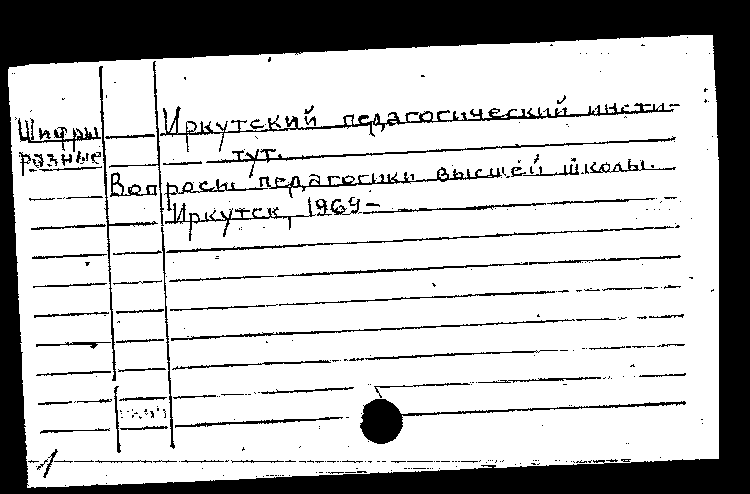 Шифры
разные
Иркутский педагогический инсти-
тут.
Вопросы педагогики высшей школы.
Иркутск, 1969-
1